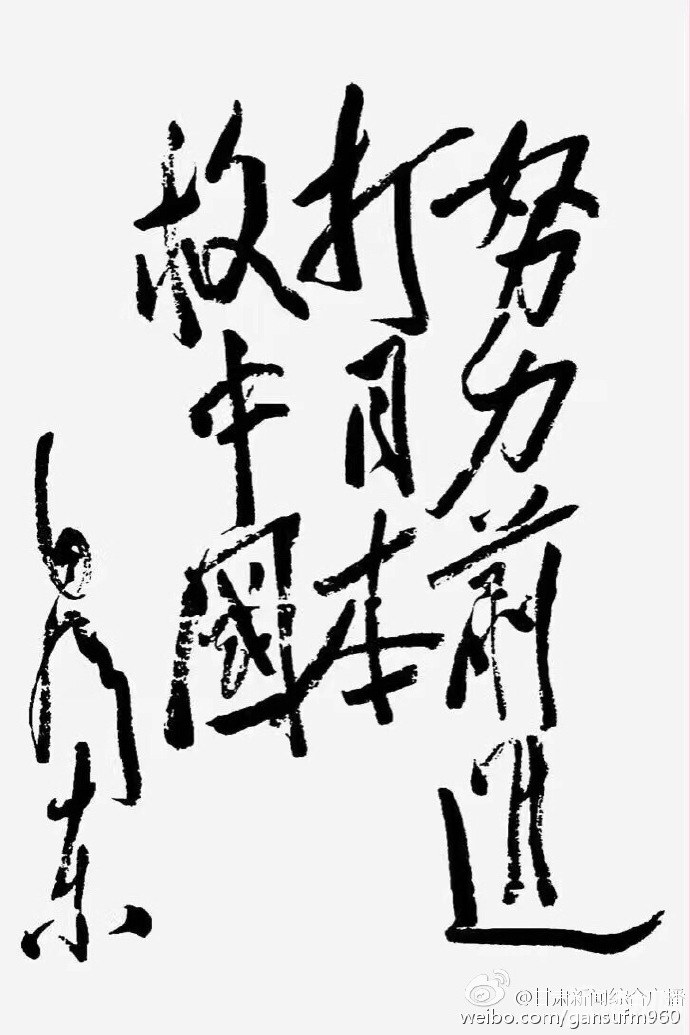 努力前进
打日本
救中國
毛泽东
@甘肃新闻综合广播
weibo.com/gansufm960